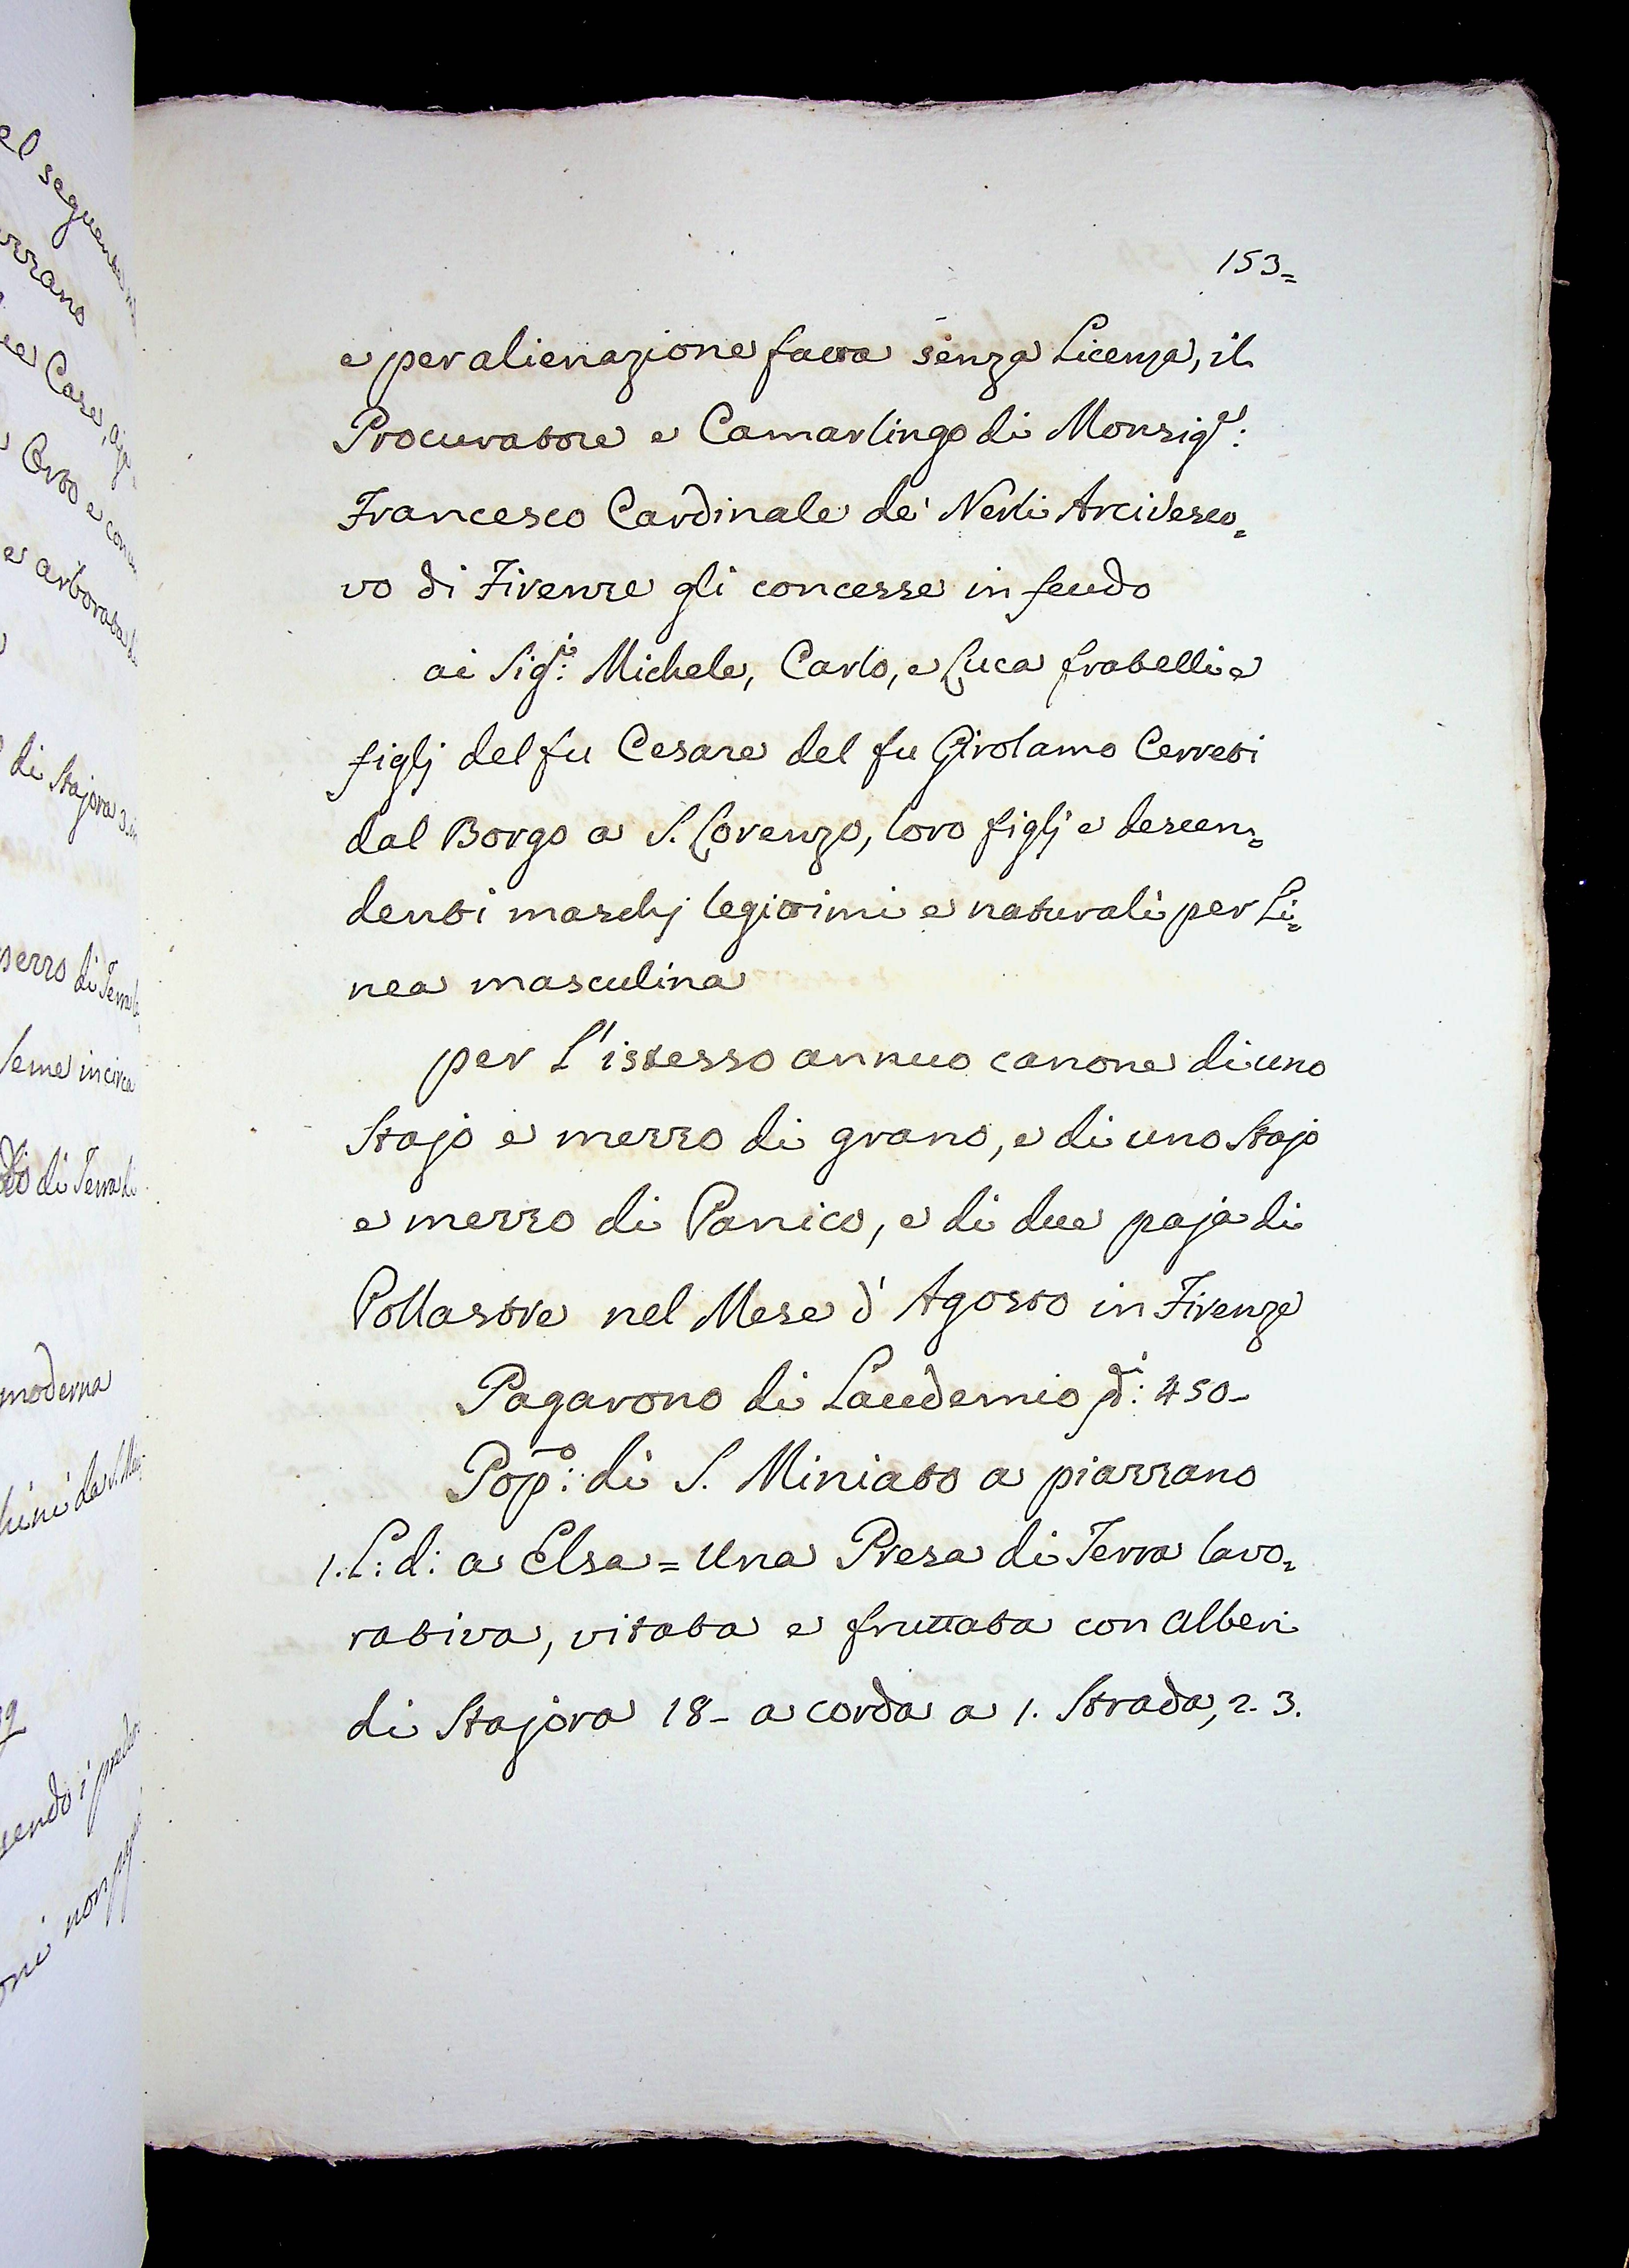 153=
e per alienazione fatta senza Licenza, il
Procuratore e Camarlingo di Monsig.r:
Francesco Cardinale de' Nerli Arcivesco=
vo di Firenze gli concesse in feudo
ai Sig.i: Michele, Carlo, e Luca fratelli e
figlj del fu Cesare del fu Girolamo Cerreti
dal Borgo a S. Lorenzo, loro figlj e descen=
denti maschj legittimi e naturali per Li=
nea masculina
per l'istesso annuo canone di uno
Stajo e mezzo di grano, e di uno Stajo
e mezzo di Panico, e di due paja di
Pollastre nel Mese d'Agosto in Firenze
Pagarono di Laudemio 450-
Pop.o: di S. Miniato a piazzano
1. L: d: a Elsa = Una Presa di Terra lavo=
rativa, vitata e fruttata con alberi
di Stajora 18- a corda a 1. Strada, 2. 3.
el seguente
zzano
Case, aja
e arborata di
di Stajora 3
pezzo di Terra
seme incirca
di Terra di
moderna